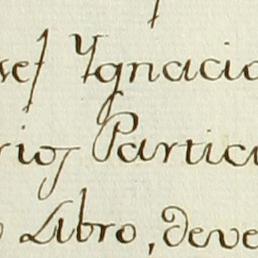 sef Ygnacio
rios Particu
o Libro, deve